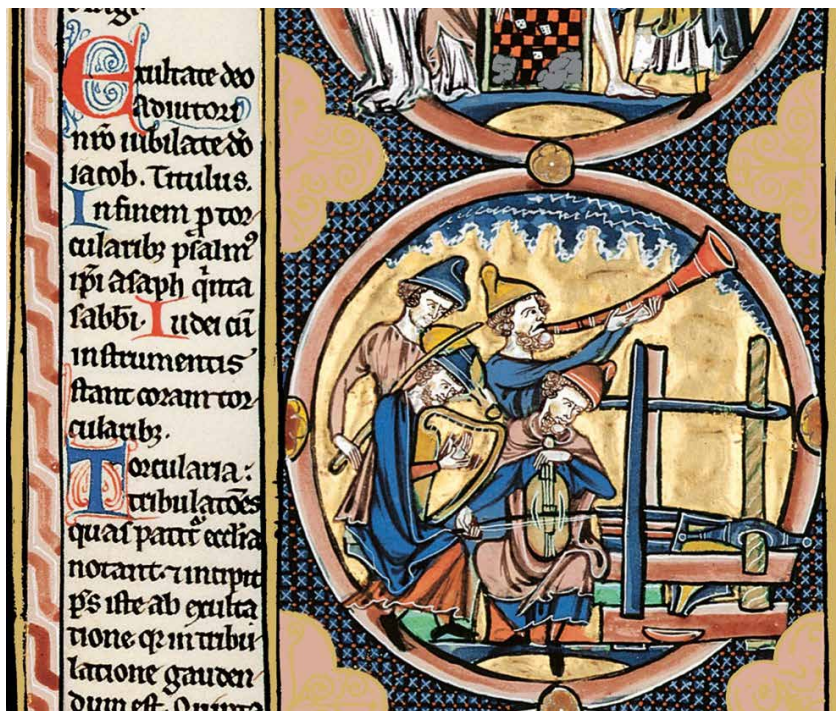 Exultate deo
Adiutori
nr̄o iubilate dō
iacob. Titulus.
Infinem ꝓ tor
cularibȝ psalm᷒
ip̄i asaph q̇nta
sabb̄i. Iudei cū
instrumentis
stant coram tor
cularibȝ.
Torcularia:
tribulatōes
quas patit᷑ ecclīa
notant. ⁊ incipit
p̄s iste ab exulta
tione qr in tribu
latione gauden
dum est. Quinta